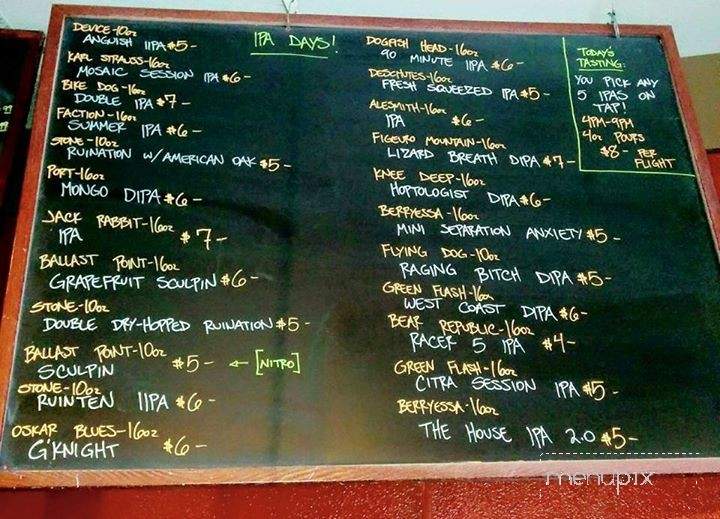 IPA DAYS!
DEVICE-10oz
ANGUISH IIPA $5-
KARL STRAUSS-16oz
MOSAIC SESSION IPA $6-
BIKE DOG-16oz
DOUBLE IPA $7-
FACTION-16oz
SUMMER IPA $6-
STONE-10oz
RUINATION W/AMERICAN OAK $5-
PORT-16oz
MONGO DIPA $6-
JACK RABBIT-16oz
IPA $7-
BALLAST POINT-16oz
GRAPEFRUIT SCULPIN $6-
STONE-10oz
DOUBLE DRY-HOPPED RUINATION $5-
BALLAST POINT-10oz
SCULPIN $5- ← [NITRO]
STONE-10oz
RUINTEN IIPA $6-
OSKAR BLUES-16oz
G'KNIGHT $6-
DOGFISH HEAD-16oz
90 MINUTE IPA $6-
DESCHUTES-16oz
FRESH SQUEEZED IPA $5-
ALESMITH-16oz
IPA $6-
FIGEURO MOUNTAIN-16oz
LIZARD BREATH DIPA $7-
KNEE DEEP-16oz
HOPTOLOGIST DIPA $6-
BERRYESSA-16oz
MINI SEPARATION ANXIETY $5-
FLYING DOG-10oz
RAGING BITCH DIPA $5-
GREEN FLASH-16oz
WEST COAST DIPA $6-
BEAR REPUBLIC-16oz
RACER 5 IPA $4-
GREEN FLASH-16oz
CITRA SESSION IPA $5-
BERRYESSA-16oz
THE HOUSE IPA 2.0 $5-
TODAY'S
TASTING:
YOU PICK ANY
5 IPAS ON
TAP!
4PM-9PM
4oz POURS
$8- PER
FLIGHT
menupix